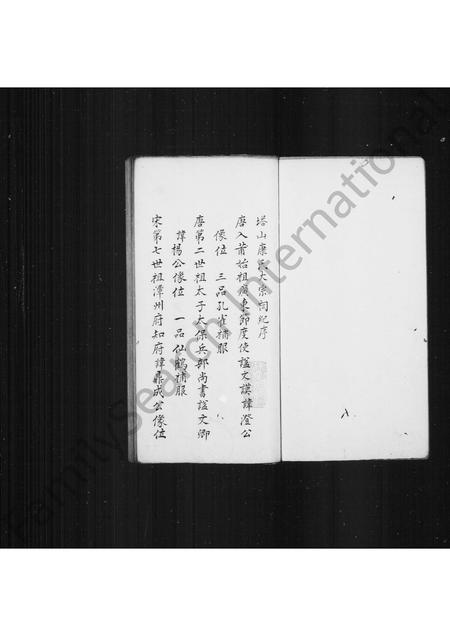 塔山康氏大宗祠紀序
唐入莆始祖廣東節度使諡文謨諱澄公
像位　三品孔雀補服
唐第二世祖太子太保兵部尚書諡文卿
諱楊公像位　一品仙鶴補服
宋第七世祖漳州府知府諱鼎成公像位
八
FamilySearch International